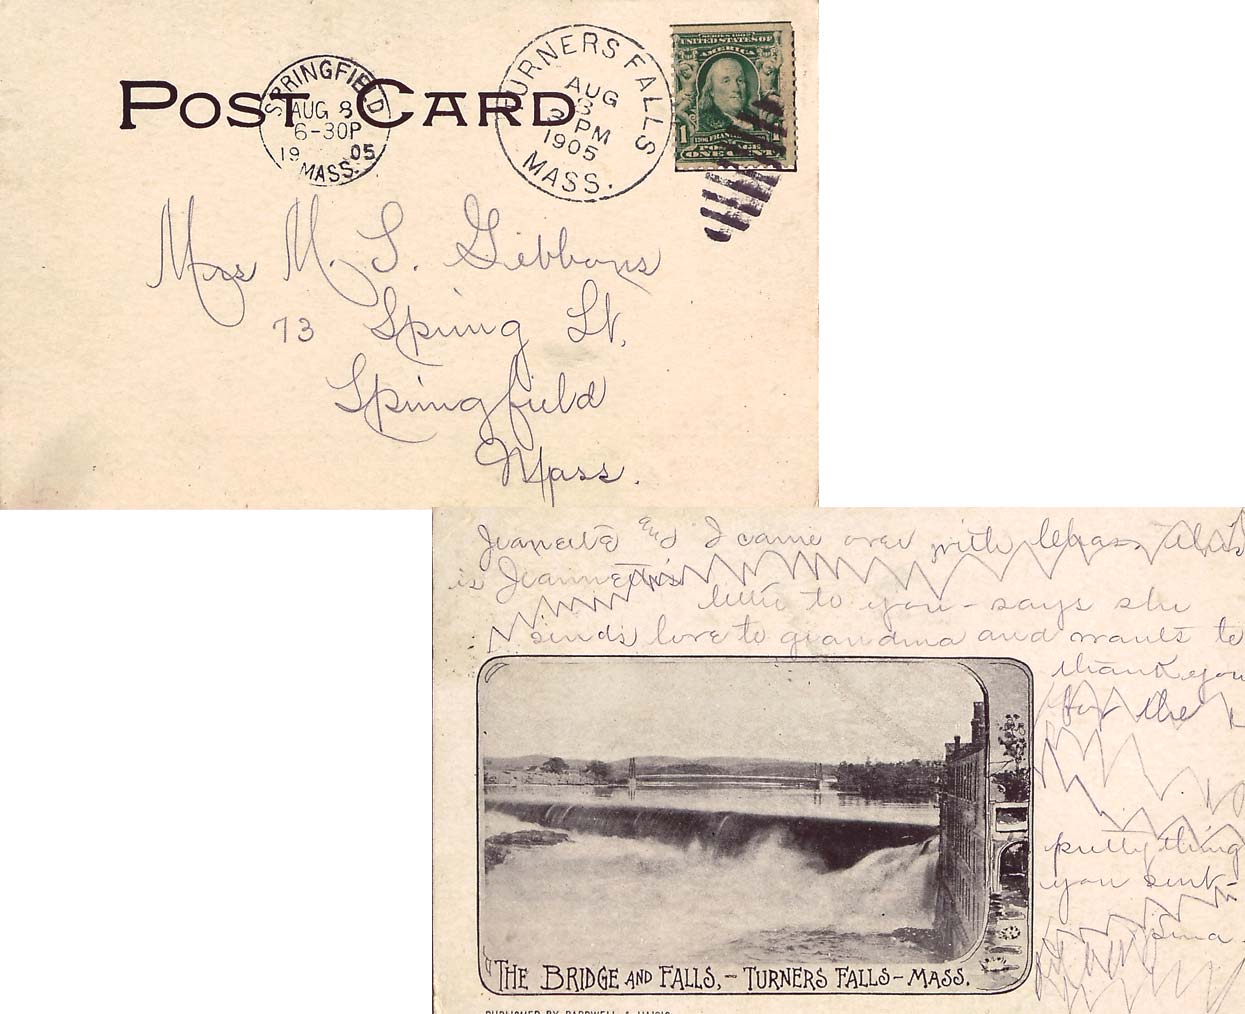 POST CARD
SPRINGFIELD
AUG 8
6-30P
19 05
MASS.
TURNERS FALLS
AUG
8
PM
1905
MASS.
SERIES 1902
UNITED STATES OF
AMERICA
1 1
POSTAGE
ONE CENT
Mrs M. S. Gibbons
73 Spring St.
Springfield
Mass.
Jeanette and I came over with
is Jeannette's
letter to you - says she
sends love to grandma and wants to
thank you
for the
pretty thing
you sent -
THE BRIDGE AND FALLS, - TURNERS FALLS - MASS.
PUBLISHED BY BARDWELL &